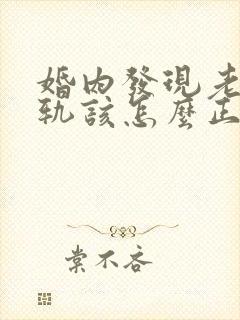 婚內發現老
軌該怎麼正
棠不吝